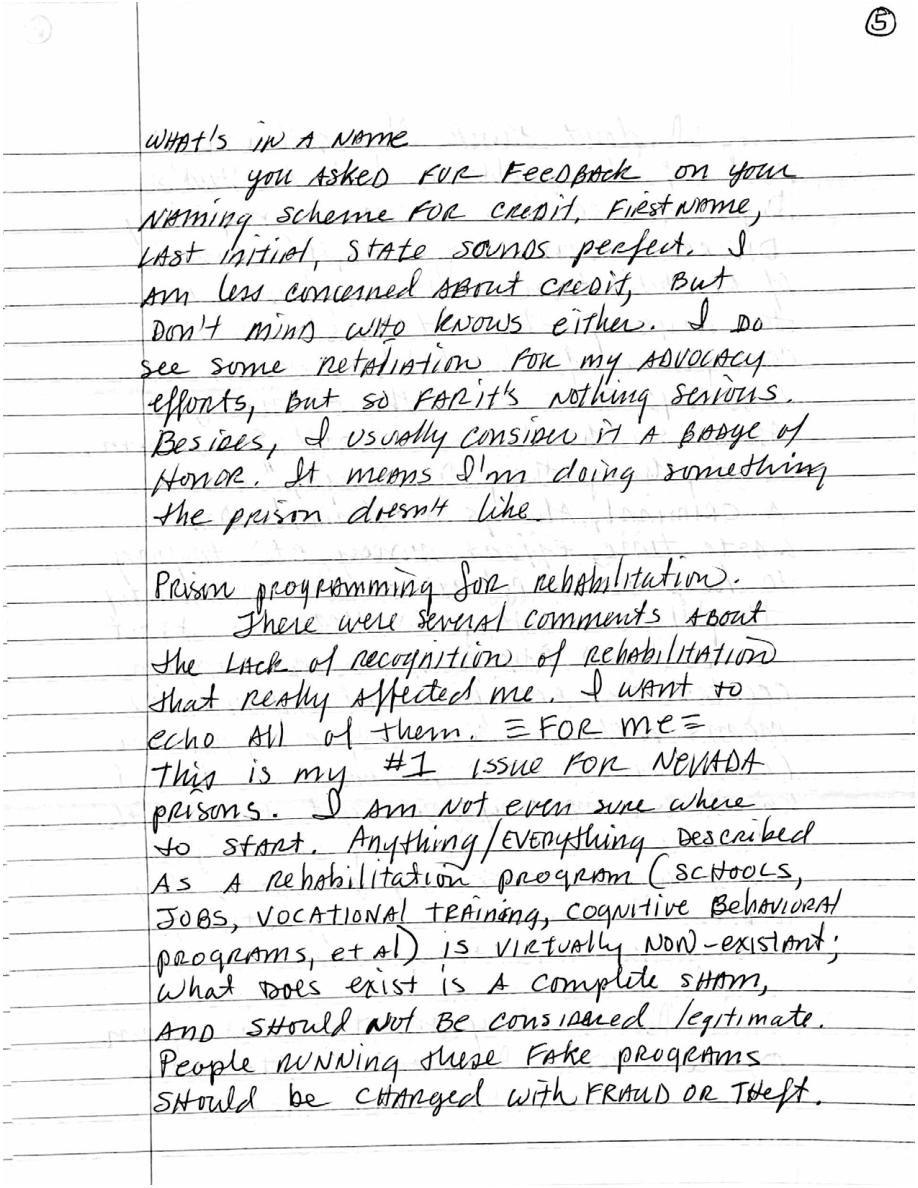 5
WHAT's in A NAME
you Asked FUR FeedBAck on your
NAMing scheme FOR CREDIT. FIRST NAME,
LAST initial, STATE SOUNDS perfect. I
AM less concerned ABOUT CREDIT, BUT
DON'T MIND WHO KNOWS either. I DO
see some RetALIATION FOR my ADVOCACY
efforts, BUT SO FAR it's Nothing Serious.
Besides, I USUALLY CONSIDER it A BADge of
HONOR. It means I'm doing something
the prison doesn't like.
Prison programming for rehabilitation.
There were several comments ABOUT
the LACK of recognition of REHABILITATION
that Really Affected me. I WANT to
echo All of them. = FOR me =
This is my #1 ISSUE FOR NEVADA
prisons. I Am Not even sure where
to START. Anything/EVERything Described
AS A rehabilitation program (SCHOOLS,
JOBS, VOCATIONAL TRAining, COGNITIVE BEHAVIORAl
programs, et Al) is VIRTUALLY NON-existant;
what DOES exist is A complete SHAM,
AND SHOULD Not Be considered legitimate.
People RUNNiNg these FAKe PROGRAMS
SHould be CHARged with FRAUD OR THeft.